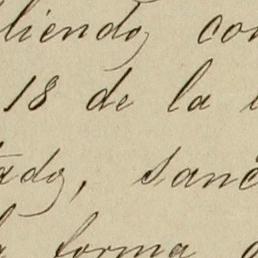 liendo, con
18 de la
tado, sanc
la forma